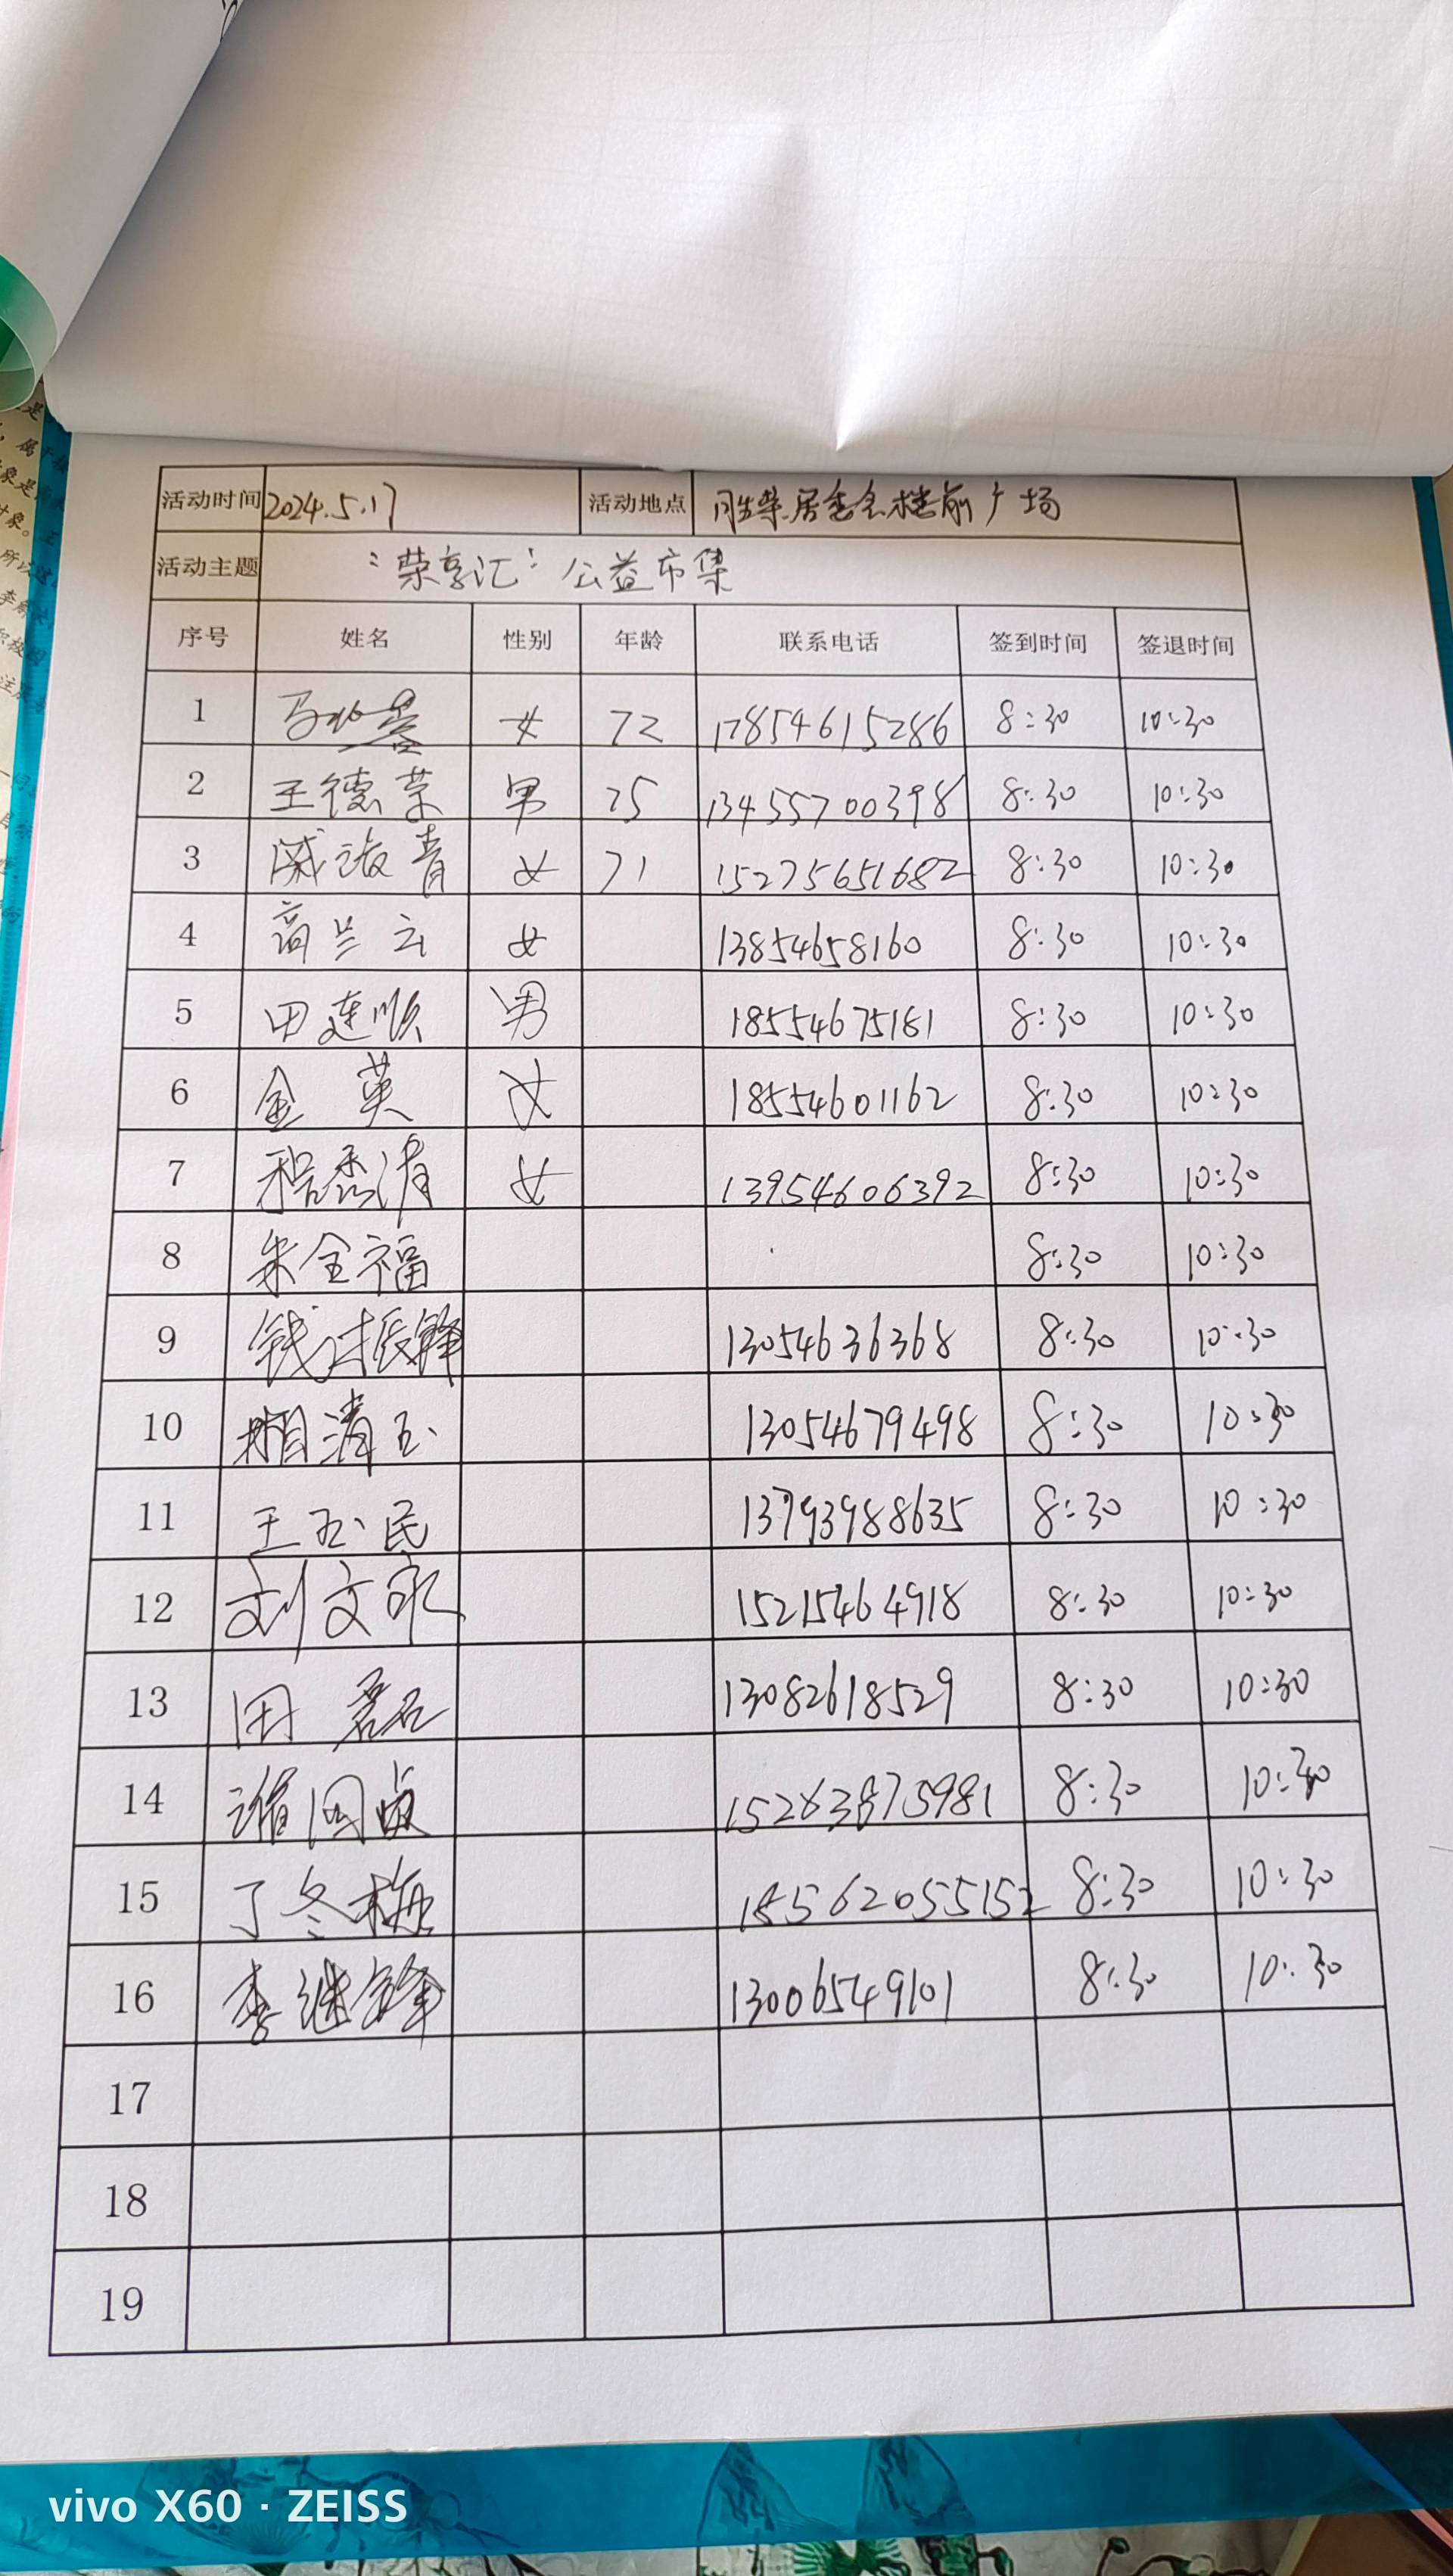 活动时间 2024.5.17 活动地点 胜荣居委会楼前广场
活动主题 “荣享汇”公益市集
序号 姓名 性别 年龄 联系电话 签到时间 签退时间
1 女 72 17854615286 8:30 10:30
2 王德荣 男 75 13455700398 8:30 10:30
3 戚淑青 女 71 15275651682 8:30 10:30
4 高兰云 女 13854658160 8:30 10:30
5 田连顺 男 18554675161 8:30 10:30
6 金英 女 18554601162 8:30 10:30
7 程香清 女 13954606392 8:30 10:30
8 朱全福 8:30 10:30
9 钱振锋 13054636368 8:30 10:30
10 相清玉 13054679498 8:30 10:30
11 王玉民 13793988635 8:30 10:30
12 刘文永 15215464918 8:30 10:30
13 田磊 13082618529 8:30 10:30
14 15263875981 8:30 10:30
15 丁冬梅 15562055152 8:30 10:30
16 李继锋 13006549101 8:30 10:30
17
18
19
vivo X60 · ZEISS